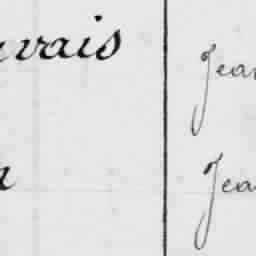 vais Jea
Jea